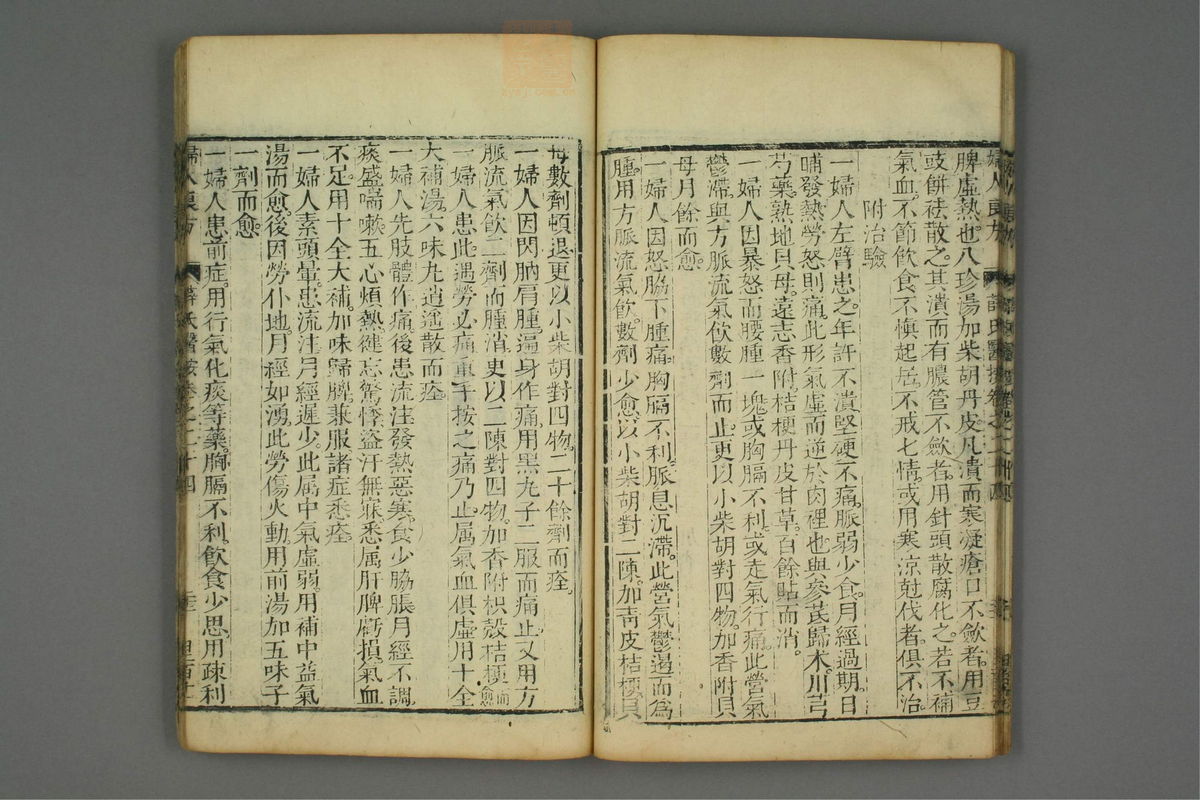 脾虛熱也八珍湯加柴胡丹皮凡潰而寒凝瘡口不斂者用豆
豉餅祛散之其潰而有膿管不斂者用針頭散腐化之若不補
氣血不節飲食不慎起居不戒七情或用寒涼尅伐者俱不治
附治驗
一婦人左臂患之年許不潰堅硬不痛脈弱少食月經過期日
晡發熱勞怒則痛此形氣虛而逆於肉裡也與參芪歸术川芎
芍藥熟地貝母遠志香附桔梗丹皮甘草百餘貼而消
一婦人因暴怒而腰腫一塊或胸膈不利或走氣行痛此營氣
鬱滯與方脈流氣飲數劑而止更以小柴胡對四物加香附貝
母月餘而愈
一婦人因怒脇下腫痛胸膈不利脈息沉滯此營氣鬱遏而為
腫用方脈流氣飲數劑少愈以小柴胡對二陳加青皮桔梗貝
母數劑頓退更以小柴胡對四物二十餘劑而痊
一婦人因閃肭肩腫遍身作痛用黑丸子二服而痛止又用方
脈流氣飲二劑而腫消更以二陳對四物加香附枳殼桔梗而愈
一婦人患此遇勞必痛重手按之痛乃止属氣血俱虛用十全
大補湯六味丸逍遙散而痊
一婦人先肢體作痛後患流注發熱惡寒食少脇脹月經不調
痰盛喘嗽五心煩熱健忘驚悸盜汗無寐悉属肝脾虧損氣血
不足用十全大補加味歸脾兼服諸症悉痊
一婦人素頭暈患流注月經遲少此属中氣虛弱用補中益氣
湯而愈後因勞仆地月經如湧此勞傷火動用前湯加五味子
一劑而愈
一婦人患前症用行氣化痰等藥胸膈不利飲食少思用疎利
婦人良方 薛氏醫按卷之二十四